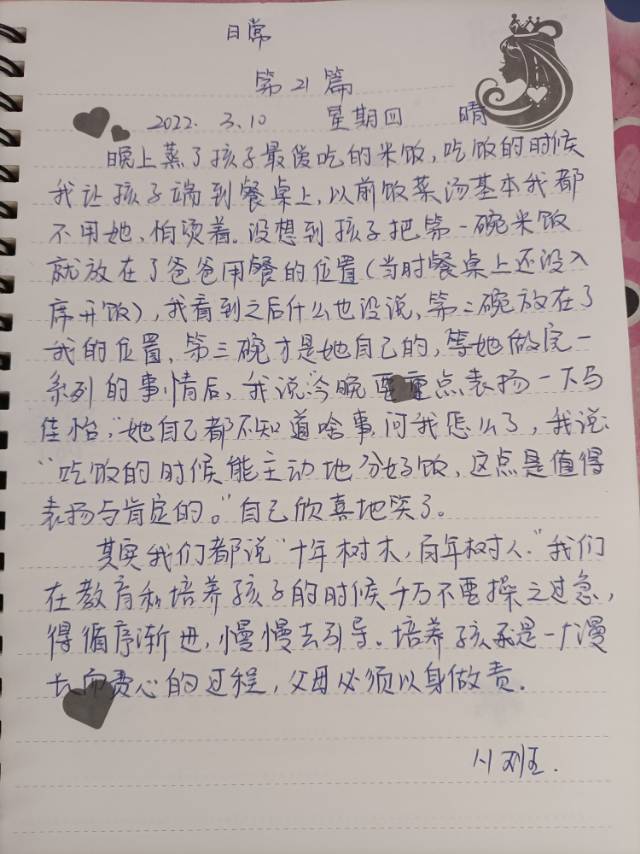 日常
第21篇
2022. 3.10 星期四 晴
晚上蒸了孩子最爱吃的米饭,吃饭的时候
我让孩子端到餐桌上,以前饭菜汤基本我都
不用她,怕烫着.没想到孩子把第一碗米饭
就放在了爸爸用餐的位置(当时餐桌上还没入
席开饭),我看到之后什么也没说,第二碗放在了
我的位置,第三碗才是她自己的,等她做完一
系列的事情后,我说“今晚要重点表扬一下马
佳怡,”她自己都不知道啥事,问我怎么了,我说:
“吃饭的时候能主动地分好饭,这点是值得
表扬与肯定的。”自己欣喜地笑了。
其实我们都说“十年树木,百年树人.”我们
在教育和培养孩子的时候千万不要操之过急,
得循序渐进,慢慢去引导.培养孩子是一个漫
长而费心的过程,父母必须以身做责.